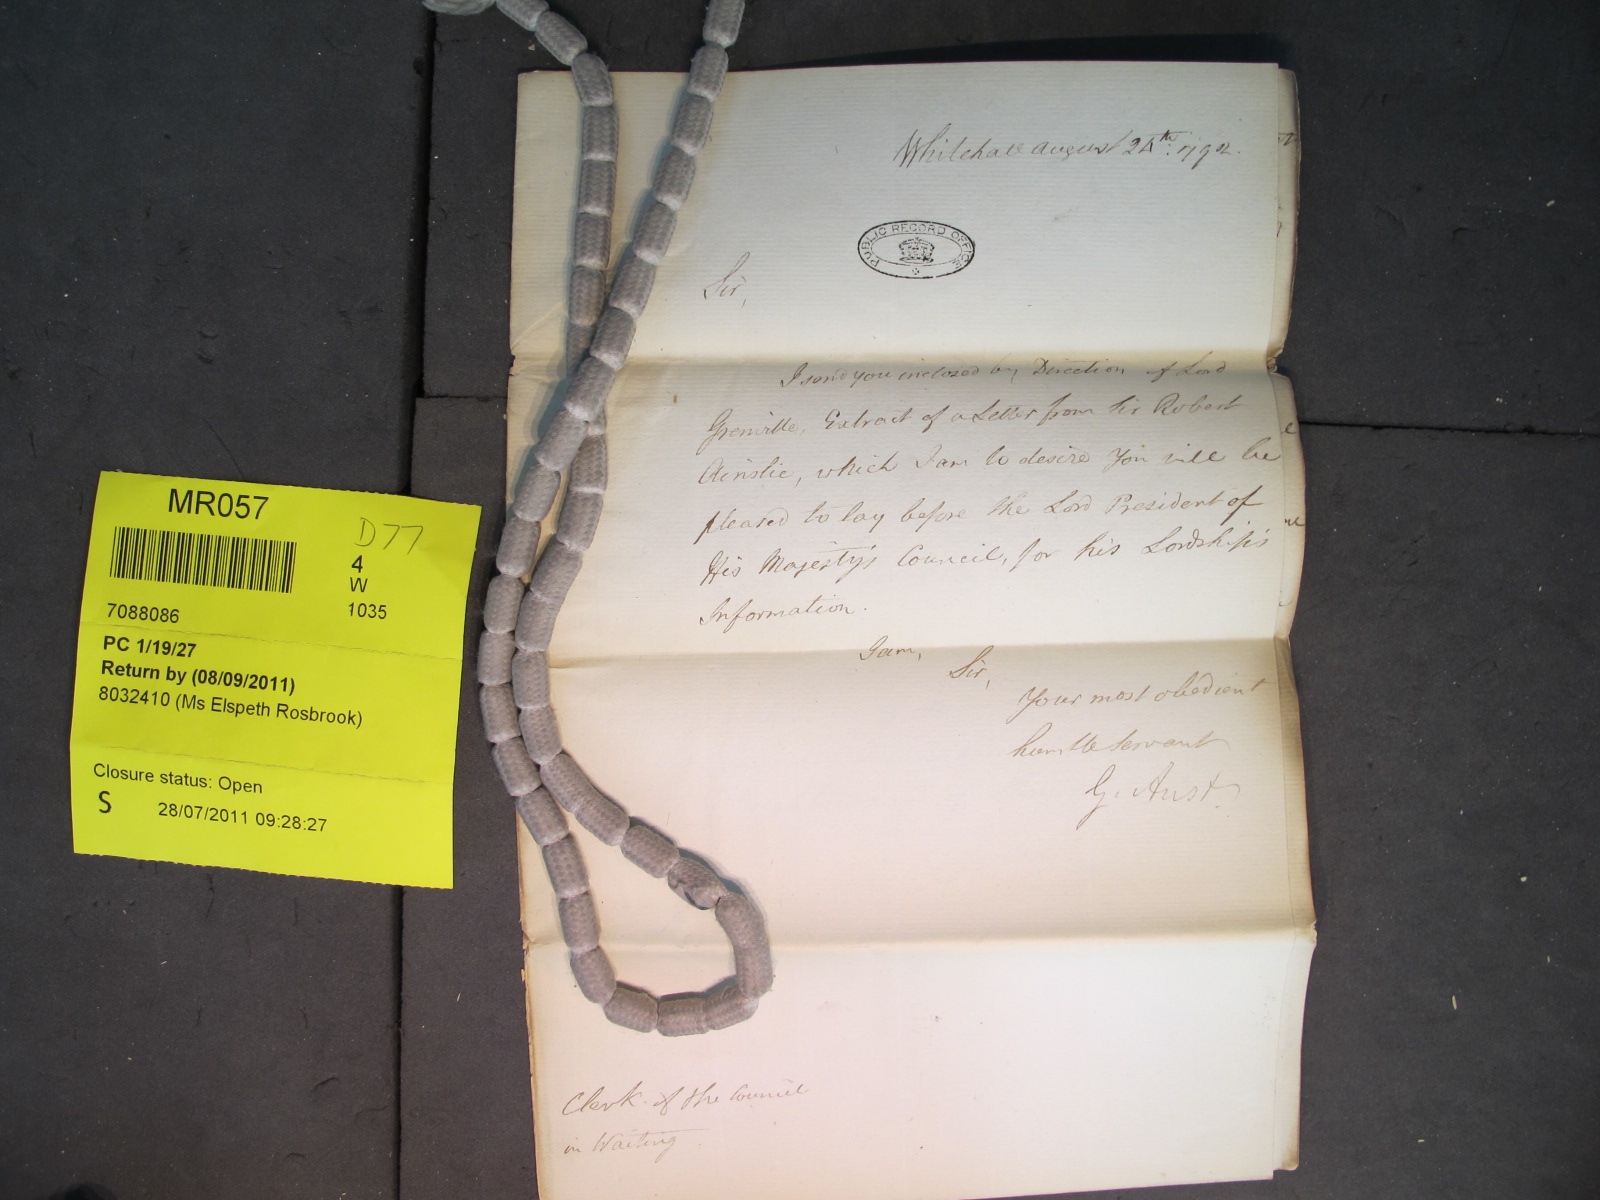 Whitehall August 24th. 1792.
PUBLIC RECORD OFFICE
Sir,
I send you inclosed by Direction of Lord
Grenville, Extract of a Letter from Sir Robert
Ainslie, which I am to desire You will be
pleased to lay before the Lord President of
His Majesty's Council, for his Lordship's
Information.
I am,
Sir,
Your most obedient
humble Servant
G. Aust.
Clerk of the Council
in Waiting
MR057
D77
4
W
7088086
1035
PC 1/19/27
Return by (08/09/2011)
8032410 (Ms Elspeth Rosbrook)
Closure status: Open
S
28/07/2011 09:28:27